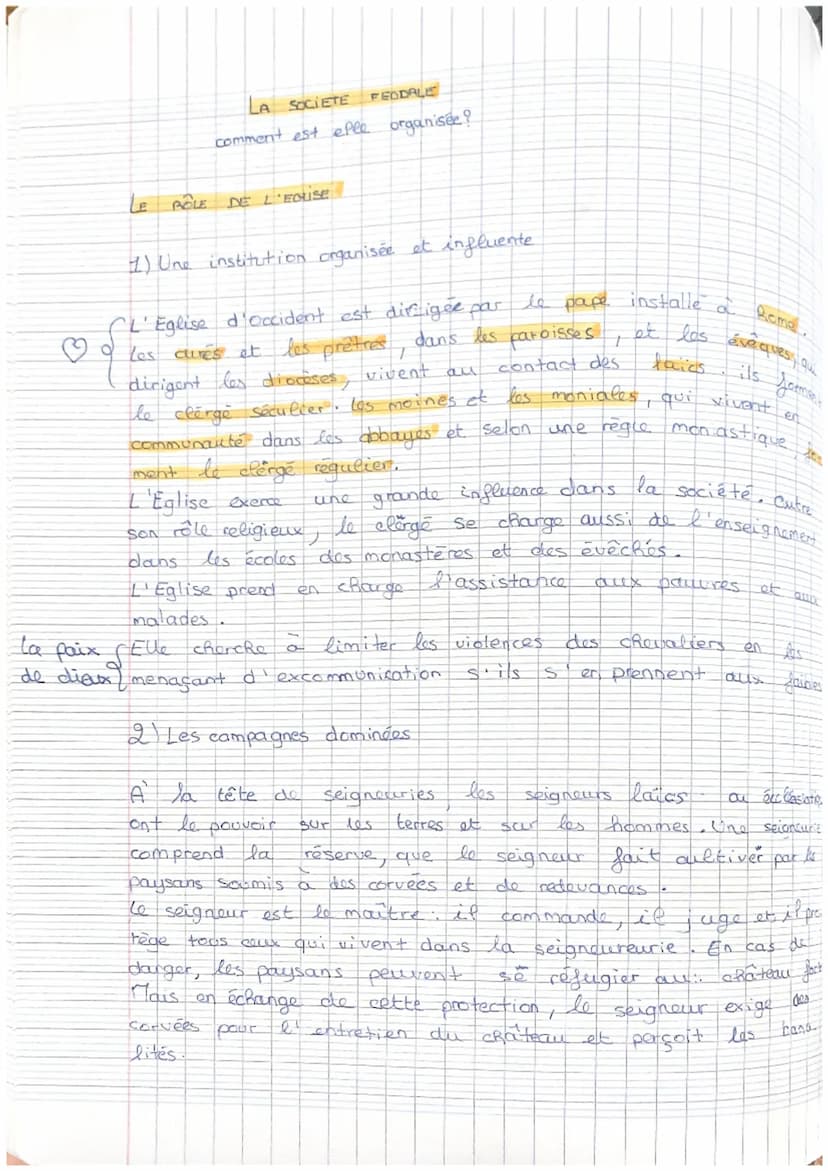 LA SOCIETE FEODALE
comment est elle organisée?
LE RÔLE DE L'EGLISE
1) Une institution organisée et influente
L'Eglise d'occident est dirigée par le pape installé à Rome.
Les curés et les prêtres, dans les paroisses, et les évêques, qui
dirigent les diocèses, vivent au contact des laïcs. ils forment
le clérgé séculier. Les moines et les moniales, qui vivent en
communauté dans les abbayes et selon une règle monastique,
ment le clérgé régulier.
L'Eglise exerce une grande influence dans la société. Outre
son rôle religieux, le clérgé se charge aussi de l'enseignement
dans les écoles des monastères et des évêchés.
L'Eglise prend en charge l'assistance aux pauvres et aux
malades.
La paix Elle cherche à limiter les violences des chevaliers en les
de dieux menaçant d'excommunication s'ils s'en prennent aux faibles
2) Les campagnes dominées
A la tête de seigneuries, les seigneurs laïcs ou
ont le pouvoir sur les terres et sur les hommes. Une seigneurie
comprend la réserve, que le seigneur fait cultiver par les
paysans soumis à des corvées et de redevances.
Le seigneur est le maître: il commande, il juge et il pro
tège tous ceux qui vivent dans la seigneureurie. En cas de
danger, les paysans peuvent se réfugier au château fort
Mais en échange de cette protection, le seigneur exige des
corvées pour l'entretien du château et perçoit les bana
lités.